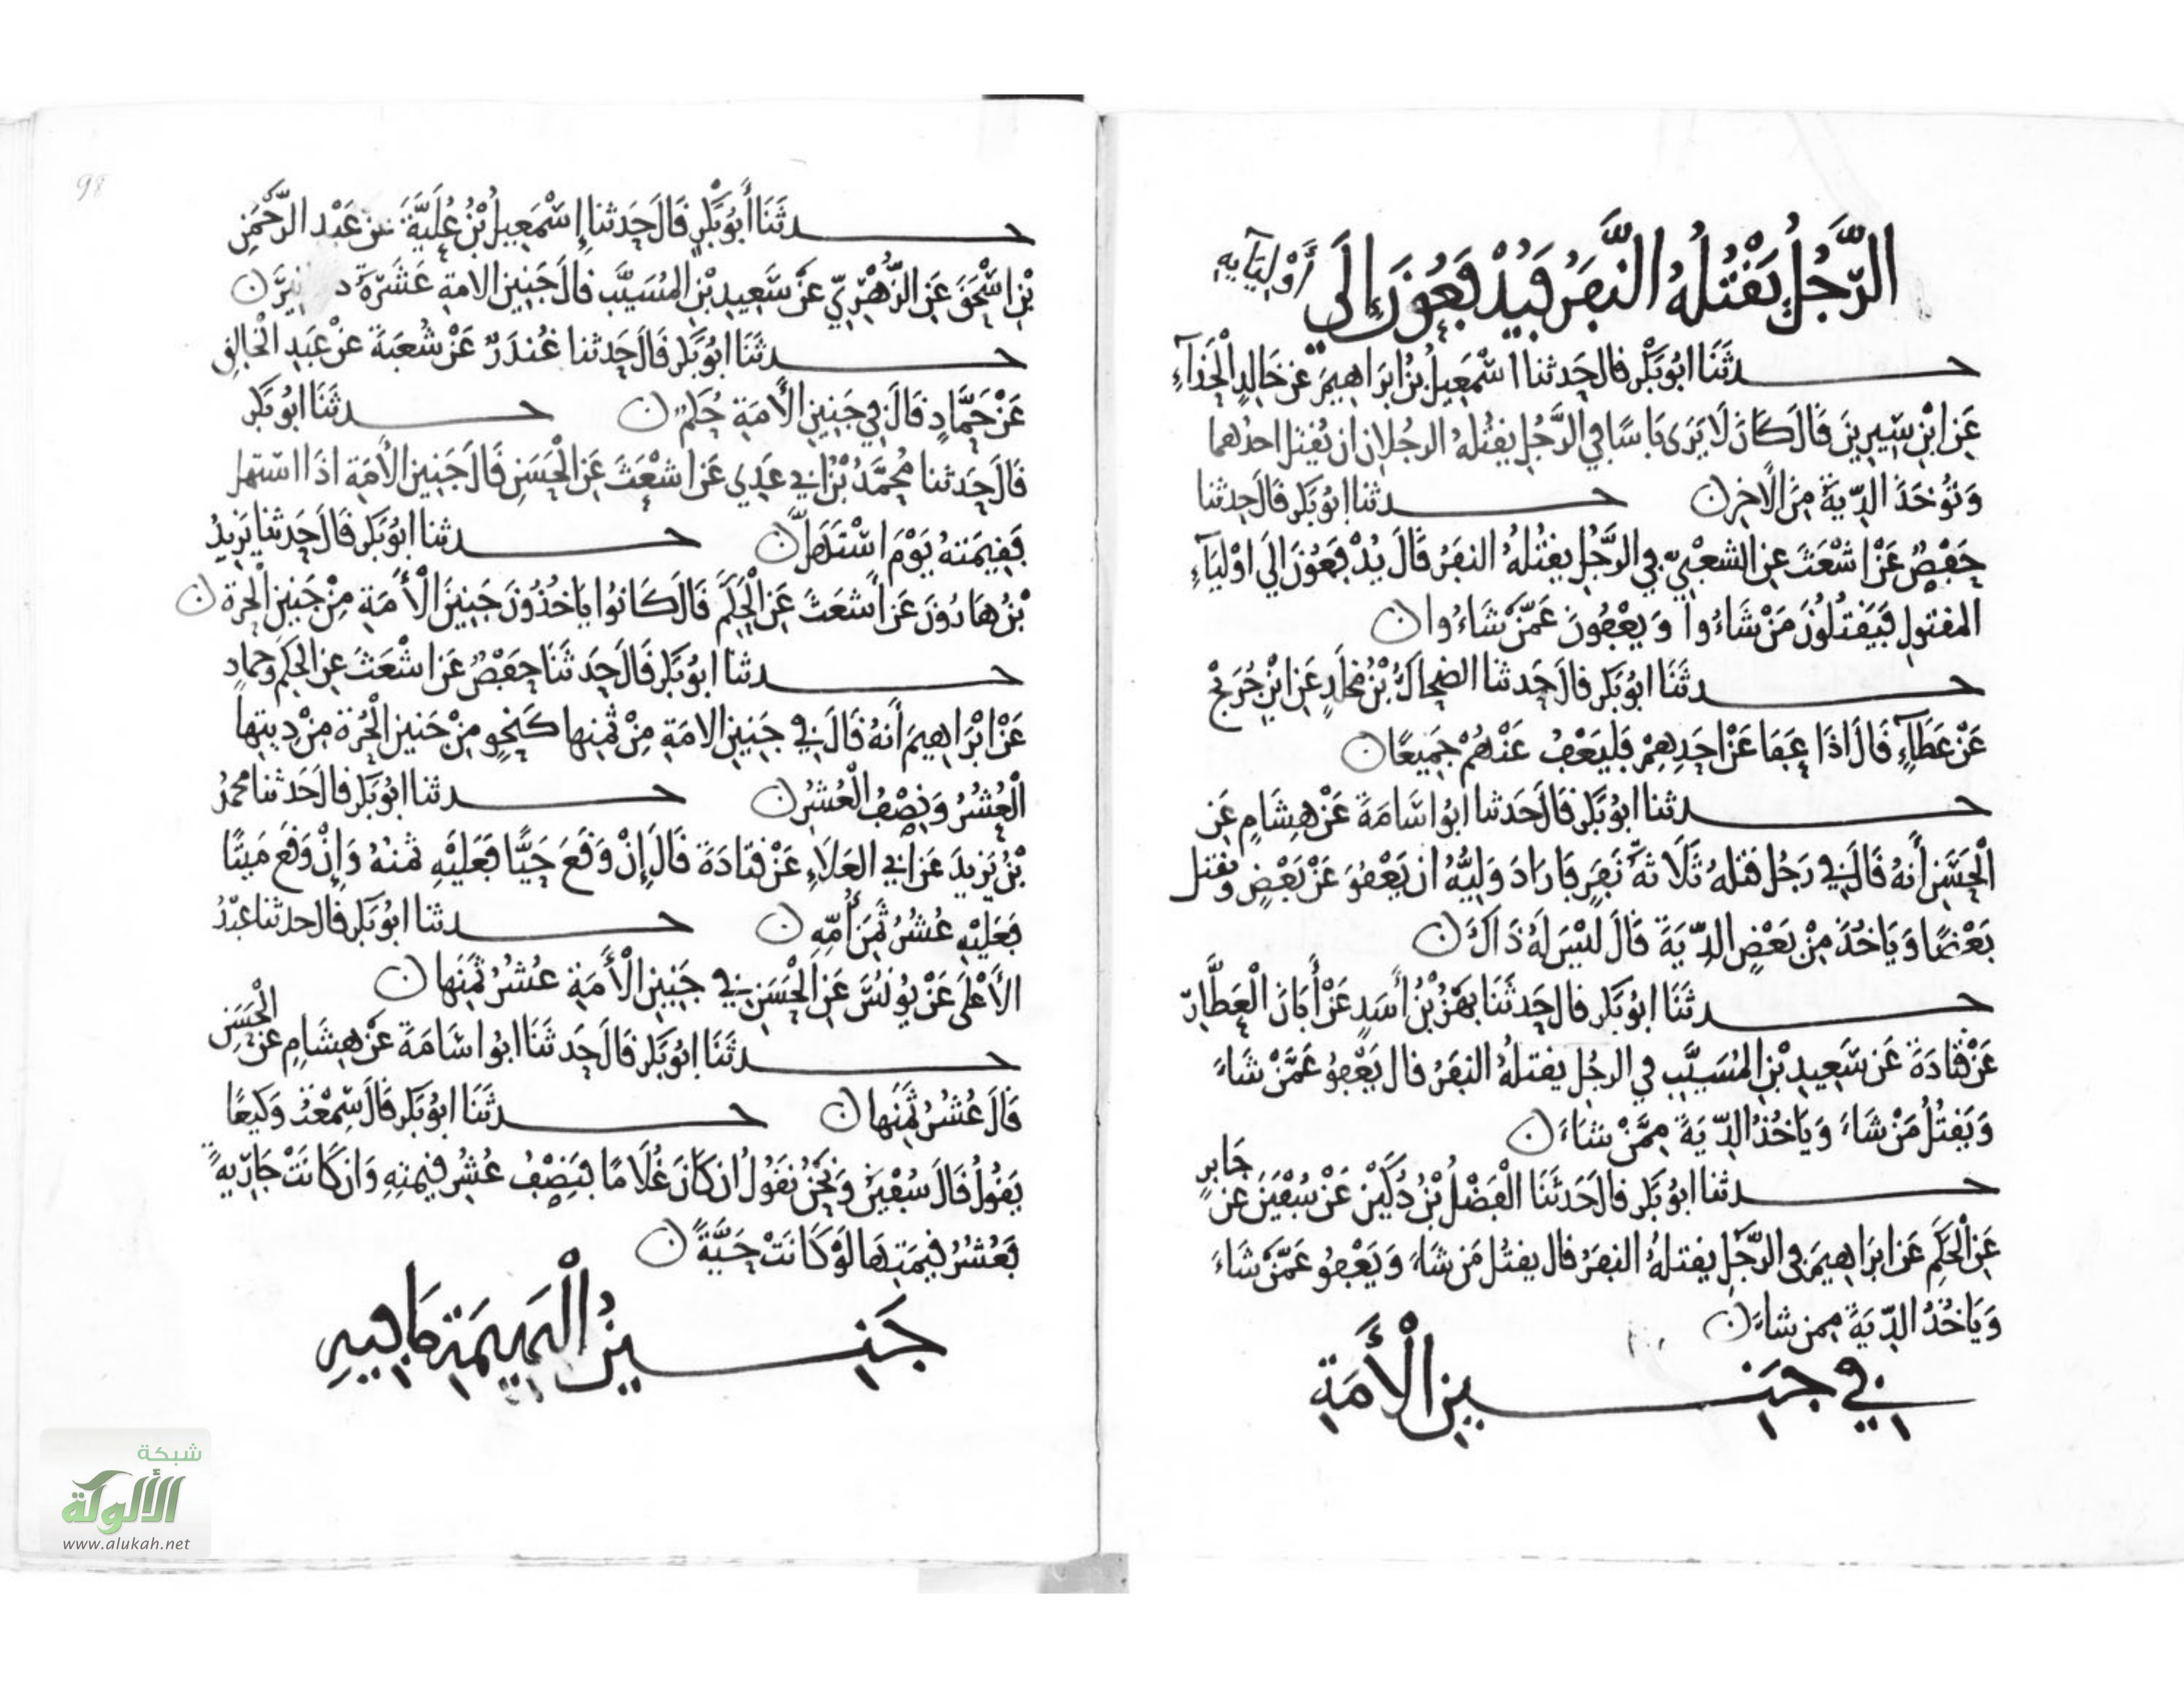 الرَّجُلُ يَقْتُلُهُ النَّفَرُ فَيُدْفَعُونَ إِلَى أَوْلِيَآيِهِ
حدثَنَا ابُو بَكْر قال حَدثنا اسْمَعِيلُ بْنُ ابرَاهِيمَ عن خَالِدٍ الْحَذآءِ
عَنِ ابْنِ سِيرِينَ قَالَ كَانَ لَا يَرَى بَاسًا في الرَّجُلِ يقتُلهُ الرجُلانِ ان يُقتل احدُهما
وَتُوخَذَ الدِّيَةُ مِنَ الْاخِرِ ن حدثنا ابُو بَكْر قَالَ حدثنا
حَفْصٌ عَنْ اشْعَثَ عن الشعْبِيِّ في الرَّجُلِ يقتُلهُ النفَرُ قَالَ يُدْفَعُونَ الَى اوْلِيَآءِ
المقتولِ فَيَقتُلُونَ مَنْ شَاءُوا وَيعْفُونَ عَمَّنْ شَاءُوا ن
حدثَنَا ابُو بَكْر قالَ حَدثنا الضحاكُ بْنُ مَخْلَدٍ عَنِ ابْنِ جُرَيْجٍ
عَنْ عَطَآءٍ قَالَ اذَا عَفَا عَنْ احَدِهِمْ فَليَعْفُ عَنْهُمْ جَمِيعًا ن
حدثنا ابُو بَكْر قالَ حَدثنا ابُو اسَامَةَ عَنْ هِشَامٍ عَنِ
الْحَسَنِ أَنهُ قَالَ في رَجُل قَتلهُ ثَلَاثةُ نَفَرٍ فَارَادَ وَلِيُّهُ ان يَعْفُوَ عَنْ بَعْضٍ وَيَقتل
بَعْضًا وَيَاخُذَ مِنْ بَعْضٍ الدِّيَةَ قَالَ لَيْسَ لَهُ ذَاكَ ن
حدثَنَا ابُو بَكْر قالَ حَدثَنَا بَهْزُ بْنُ أَسَدٍ عَنْ أَبَانَ الْعَطَّارِ
عَنْ قَتَادَةَ عَن سَعِيدِ بْنِ المُسَيَّبِ في الرجُلِ يقتلهُ النفَرُ قال يَعْفُو عَمَّنْ شَاءَ
وَيَقتُلُ مَنْ شَاءَ وَيَاخُذُ الدِّيَةَ مِمَّنْ شَاءَ ن
حدثنا ابُو بَكْر قالَ حَدثَنَا الْفَضْلُ بْنُ دُكَيْنٍ عَنْ سُفْيَنَ عَنْ جَابِرٍ
عَنِ الْحَكَمِ عَن ابرَاهِيمَ في الرَّجُلِ يقتلهُ النفَرُ قال يقتُل مَن شَاءَ وَيَعْفُو عَمَّنْ شَاءَ
وَيَاخُذُ الدِّيَةَ ممن شاءَ ن
في جَنِينِ الْأَمَةِ
98
حدثَنَا أَبُو بَكْرٍ قَالَ حَدثنا إِسْمَعِيلُ بْنُ عُلَيَّةَ عَنْ عَبْدِ الرَّحْمَنِ
بْنِ اسْحَقَ عَنِ الزُّهْرِيِّ عَنْ سَعِيدِ بْنِ المُسَيَّبِ قالَ جَنِينُ الامةِ عَشَرَةُ دنانِيرَ ن
حدثَنَا ابُو بَكْر قَالَ حَدثنا غُنْدَرٌ عَنْ شُعبَةَ عَنْ عَبدِ الْخالِقِ
عَنْ حَمَّادٍ قَالَ في جَنِينِ الْأَمَةِ حُكْمٌ ن حدثَنَا ابُو بَكْر
قَالَ حَدثنا مُحمَّدُ بْنُ ابي عَدِي عَن اشْعَثَ عَنِ الْحَسَنِ قَالَ جَنِينُ الْأَمَةِ اذَا استهل
فَقِيمَتهُ يَوْمَ اسْتَهَلَّ ن حدثنا ابُو بَكْر قَالَ حَدثنا يَزِيدُ
بْنُ هَارُونَ عَن أَشعَثَ عَنِ الْحَكَمِ قَالَ كَانُوا يَاخُذُونَ جَنِينَ الْأَمَةِ مِنْ جَنِينِ الْحُرةِ ن
حدثنا ابُو بَكْر قَالَ حَدثَنَا حَفْصٌ عَن اشْعَثَ عنِ الحَكَمِ وَحمادٍ
عَنْ ابْرَاهِيمَ أَنهُ قَالَ في جَنِينِ الامَةِ مِنْ ثَمَنِها كَنَحْوٍ مِنْ جَنِينِ الْحُرَّةِ مِنْ دِيتِها
الْعُشُرُ وَنِصْفُ الْعُشُرِ ن حدثنا ابُو بَكْر قالَ حَدثنا محمدُ
بْنُ يَزِيدَ عَن ابي العَلَاءِ عَنْ قَتَادَةَ قَالَ إِنْ وَقَعَ حَيًّا فَعَلَيْهِ ثَمَنُهُ وَإِنْ وَقَعَ مَيتًا
فَعَلَيْهِ عُشُرُ ثَمَنِ أُمِّهِ ن حدثنا ابُو بَكْر قال حدثنا عَبْدُ
الأَعْلَى عَنْ يُونُسَ عَنِ الْحَسَنِ في جَنِينِ الْأَمَةِ عُشُرُ ثَمَنِها ن
حدثَنَا ابُو بَكْر قَالَ حَدثَنَا ابُو اسَامَةَ عَنْ هِشَامٍ عَنِ الْحَسَنِ
قَالَ عُشُرُ ثَمَنِها ن حدثَنَا ابُو بَكْر قَالَ سَمِعْتُ وَكِيعًا
يَقُولُ قَالَ سُفْيَنُ وَنَحْنُ نَقُولُ ان كَانَ غُلَامًا فَنِصْفُ عُشُرِ قِيمَتِهِ وَان كَانَتْ جَارِيَةً
فَعُشُرُ قِيمَتِهَا لَوْ كَانَتْ حَيَّةً ن
جَنِينُ الْبَهِيمَةِ مَا فِيهِ
شبكة
الألوكة
www.alukah.net